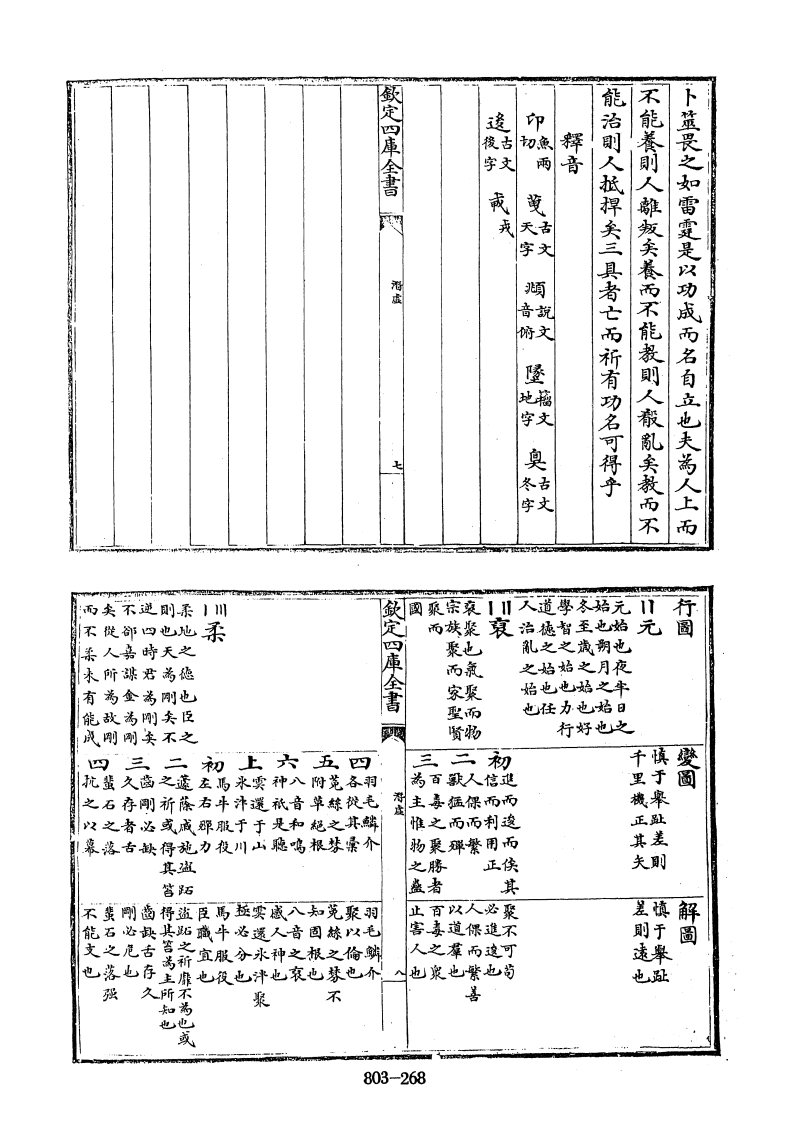 卜筮畏之如雷霆是以功成而名自立也夫為人上而
不能養則人離叛矣養而不能教則人殽亂矣教而不
能治則人抵捍矣三具者亡而祈有功名可得乎
釋音
卬魚兩切 古文天字 頫說文音俯 墬籀文地字 古文冬字
逡古文後字 戎
欽定四庫全書
潛虛
七
行圖
變圖
解圖
元
元始也夜半日之
始也朔月之始也
冬至歲之始也好
學智之始也力行
道德之始也任
人治亂之始也
慎于舉趾差則
千里機正其矢
慎于舉趾
差則遠也
裒
裒聚也氣聚而物
宗族聚而家聖賢
聚而
國
初
進而逡而俟其
信而利用正
聚不可苟
必進逡也
二
人倮而繁
獸猛而殫
人倮而繁善
以道羣也
三
百毒之聚勝者
為主惟物之蠱
百毒之聚
止害人也
欽定四庫全書
潛虛
八
四
羽毛鱗介
各從其彙
羽毛鱗介
聚以倫也
五
菟絲之棼
附草絕根
菟絲之棼不
知固根也
六
八音和鳴
神祇是聽
八音之裒
感人神也
上
雲還于山
冰泮于川
雲還冰泮聚
極必分也
柔
柔地之德也臣之
則也天為剛矣不
逆四時君為剛矣
不郤嘉謀金為剛
矣從人所為故剛
而不柔未有能成
初
馬牛服役
左右力
馬牛服役
臣職宜也
二
蘧蒢戚施盜跖
之祈或得其笞
盜跖之祈靡不為也或
得其笞為主所知也
三
齒剛必缺
久存者舌
齒缺舌存久
剛必危也
四
蜚石之落
抗之以幕
蜚石之落强
不能支也
803-268